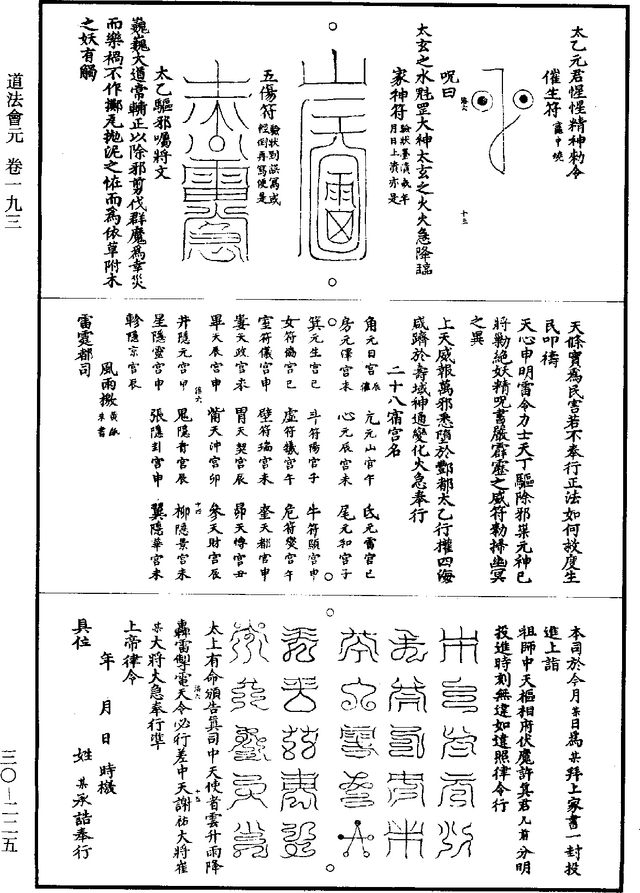 太乙元君惺惺精神勑令
催生符
竈中燒
太玄之水魁罡大神太玄之火火急降臨
呪曰
家神符
五傷符
太乙驅邪囑將文
巍巍大道常輔正以除邪剪伐群魔爲幸災
而樂禍不作擲瓦拋泥之怪而爲依草附木
之妖有觸
天條實爲民害若不奉行正法如何救度生
民叩禱
天心申明雷令力士天丁驅除邪祟元神已
將勦絕妖精呪書嚴霹靂之威符勑掃幽冥
之異
上天威報萬邪悉墮於酆都太乙行權四海
咸躋於壽域神通變化火急奉行
二十八宿宮名
角元日宮辰 亢元山宮午 氐元雷宮巳
房元澤宮未 心元辰宮未 尾元和宮子
箕元生宮巳 斗符陽宮子 牛符頤宮申
女符 宮巳 虛符 宮午 危符 宮午
室符儀宮申 壁符瑞宮未 奎天都宮申
婁天政宮未 胃天契宮辰 昴天慱宮丑
畢天辰宮申 觜天沖宮卯 參天財宮辰
井隱元宮申 鬼隱青宮辰 柳隱景宮未
星隱靈宮申 張隱刲宮申 翼隱華宮未
軫隱京宮辰
風雨檄
黃紙朱書
雷霆都司
本司於今月某日爲某拜上家書一封投
進上詣
祖師中天樞相府伏魔許真君几前分明
投進時刻無違如違照律令行
太上有命頒告眞司中天使者雲升雨降
轟雷掣電天令必行差中天謝祐大將崔
某大將火急奉行準
上帝律令
年 月 日 時檄
具位 姓 某承誥奉行
道法會元 卷一九三
三〇—二二五